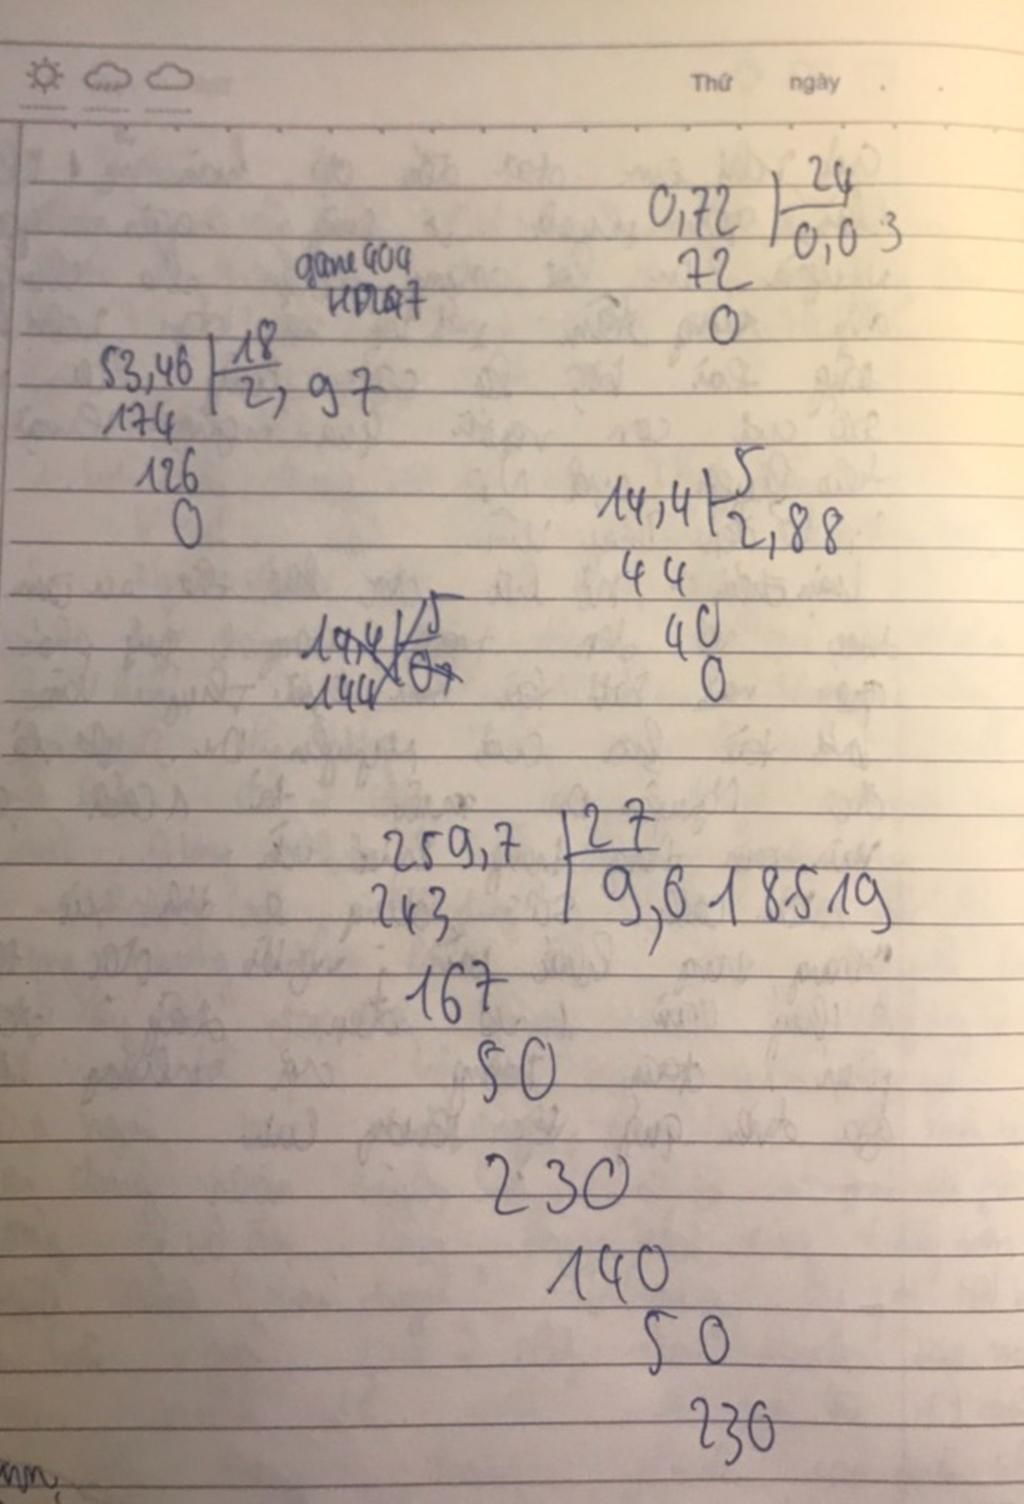 Thứ ngày
0,72 24
0,03
72
0
53,46 18
2,97
174
126
0
14,4 5
2,88
44
40
0
14,4 5
144
259,7 27
9,618519
243
167
50
230
140
50
230